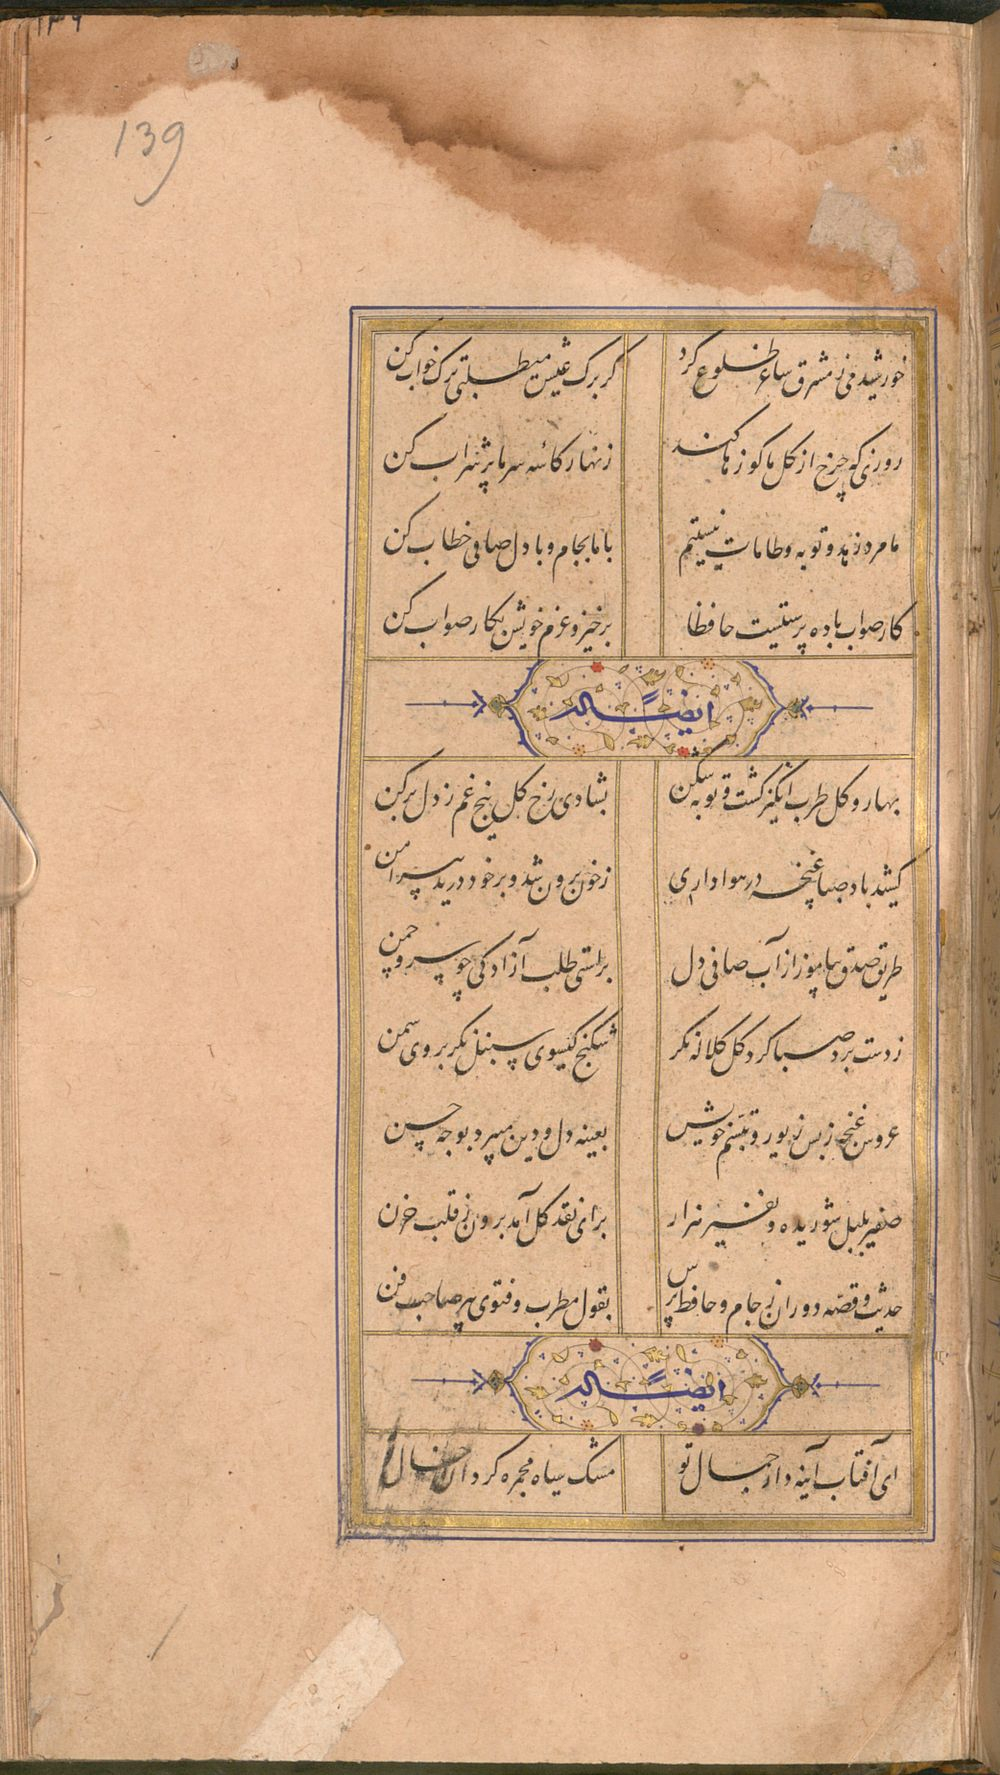 ۱۳۹
139
خورشید می ز مشرق ساغر طلوع کرد
کر برک عیش میطلبی ترک خواب کن
روزی که چرخ از کل ما کوزها کند
زنهار کاسه سر ما پر شراب کن
ما مرد زهد و توبه و طامات نیستیم
با ما بجام و بادل صافی خطاب کن
کار صواب باده پرستیست حافظا
برخیز و عزم خویش بکار صواب کن
ایضاً له
بهار و کل طرب انکیز کشت و توبه شکن
بشادی رخ کل بیخ غم ز دل برکن
کشید باد صبا غنچه در هواداری
ز خون برون شد و بر خود درید پیراهن
طریق صدق بیاموز از آب صافی دل
براستی طلب آزادکی چو سرو چمن
ز دست برد صبا کرد کل کلاله نکر
شکنج کیسوی سنبل نکر بروی سمن
عروس غنچه ز بس زیور و تبسم خویش
بعینه دل و دین میبرد بوجه حسن
صفیر بلبل شوریده و نفیر هزار
برای نقد کل آمد برون ز قلب حزن
حدیث و قصه دوران ز جام و حافظ پرس
بقول مطرب و فتوی پیر صاحب فن
ایضاً له
ای آفتاب آینه دار جمال تو
مشک سیاه مجمره کردان خال